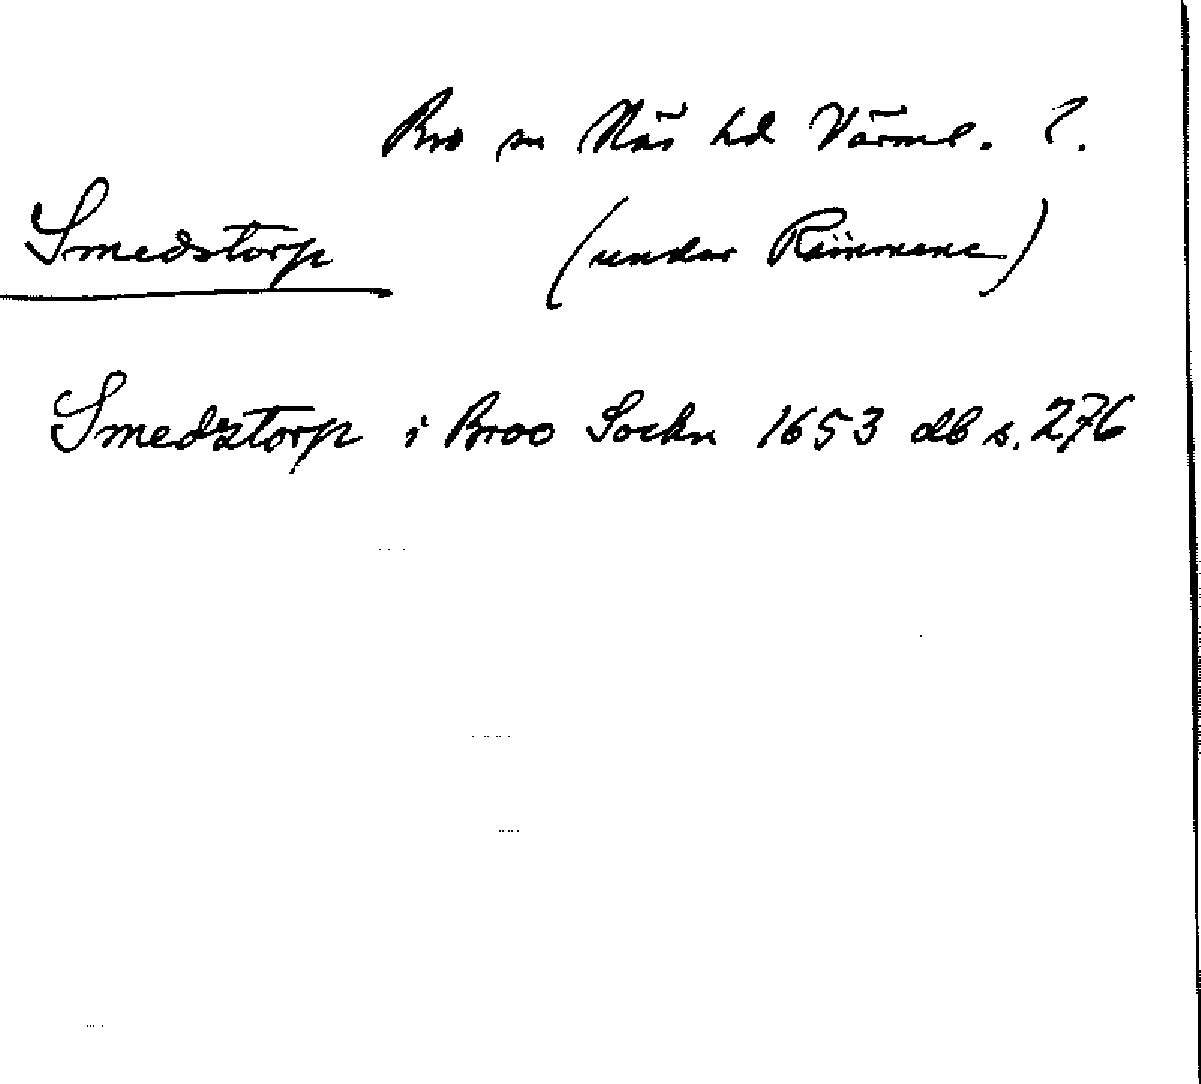 Bro sn Näs hd Värml. ?.
Smedstorp (under Rämmene)
Smedztorp i Broo Sockn 1653 db s. 276